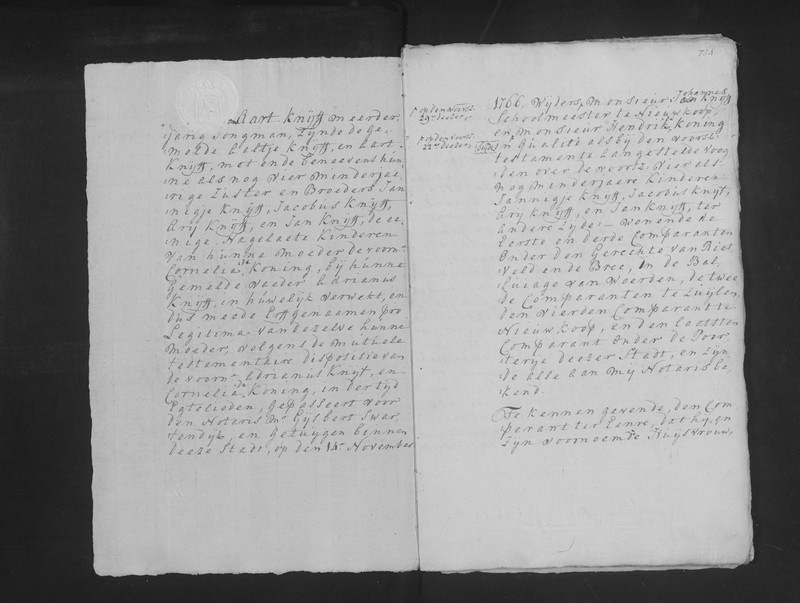 Aart Knijff meerder,
Jarig Jongman, Zijnde de ge,
melde Aaltje Knijff, en Aart
Knijff, met ende beneevens hún,
ne als nog vier minderjae,
rige Zúster en Broeders Jan,
nigje Knijff, Jacobús Knijff,
Arij Knijff, en Jan Knijff, de ee,
nige Nagelaete Kinderen
van húnne Moeder de voorn:
Cornelia Koning, bij húnne
gemelde vaeder Adrianus
Knijff, in húwelijk verwekt, en
dús meede Erfgenaamen pro
Legitima van dezelve húnne
moeder, volgens de mutuele
testamentaire dispositie van
de voorn: Adrianus Knijt, en
Cornelia Koning, in der tijd
Egtelieden, gepasseert voor
den Notaris Mr. Gijsbert Swar,
tendijk, en getuygen binnen
deeze Stadt, op den 14e November
734
1766. Wijders, Monsieur Johannes Knijff
Schoolmeester te Nieuwkoop,
en Monsieur Hendrik Koning
in Qualité als bij den voorsz:
testamente aangestelde voog,
den over de voorsz: vier als
nog minderjaere Kinderen
Jannigje Knijff, Jacobús Knijt,
Arij Knijff, en Jan Knijff, ter
andere Zijde; wonende de
Eerste en derde Comparanten
onder den Gerechte van Riet,
veld ende Bree, in de Bal,
Luwage van Woerden, de twee
de Comparanten te Zuijlen,
den vierden Comparant te
Nieuwkoop, en den laatsten
Comparant onder de Poor,
terije deezer Stadt, en Zijn,
de alle aan mij Notaris be,
kend.
Te kennen gevende, den Com,
parant ter Eenre, dat hij, en
Zijn voornoemde Huysvrouw,
op den voorsz:
29en decber:
op den voorsz:
22en decber: